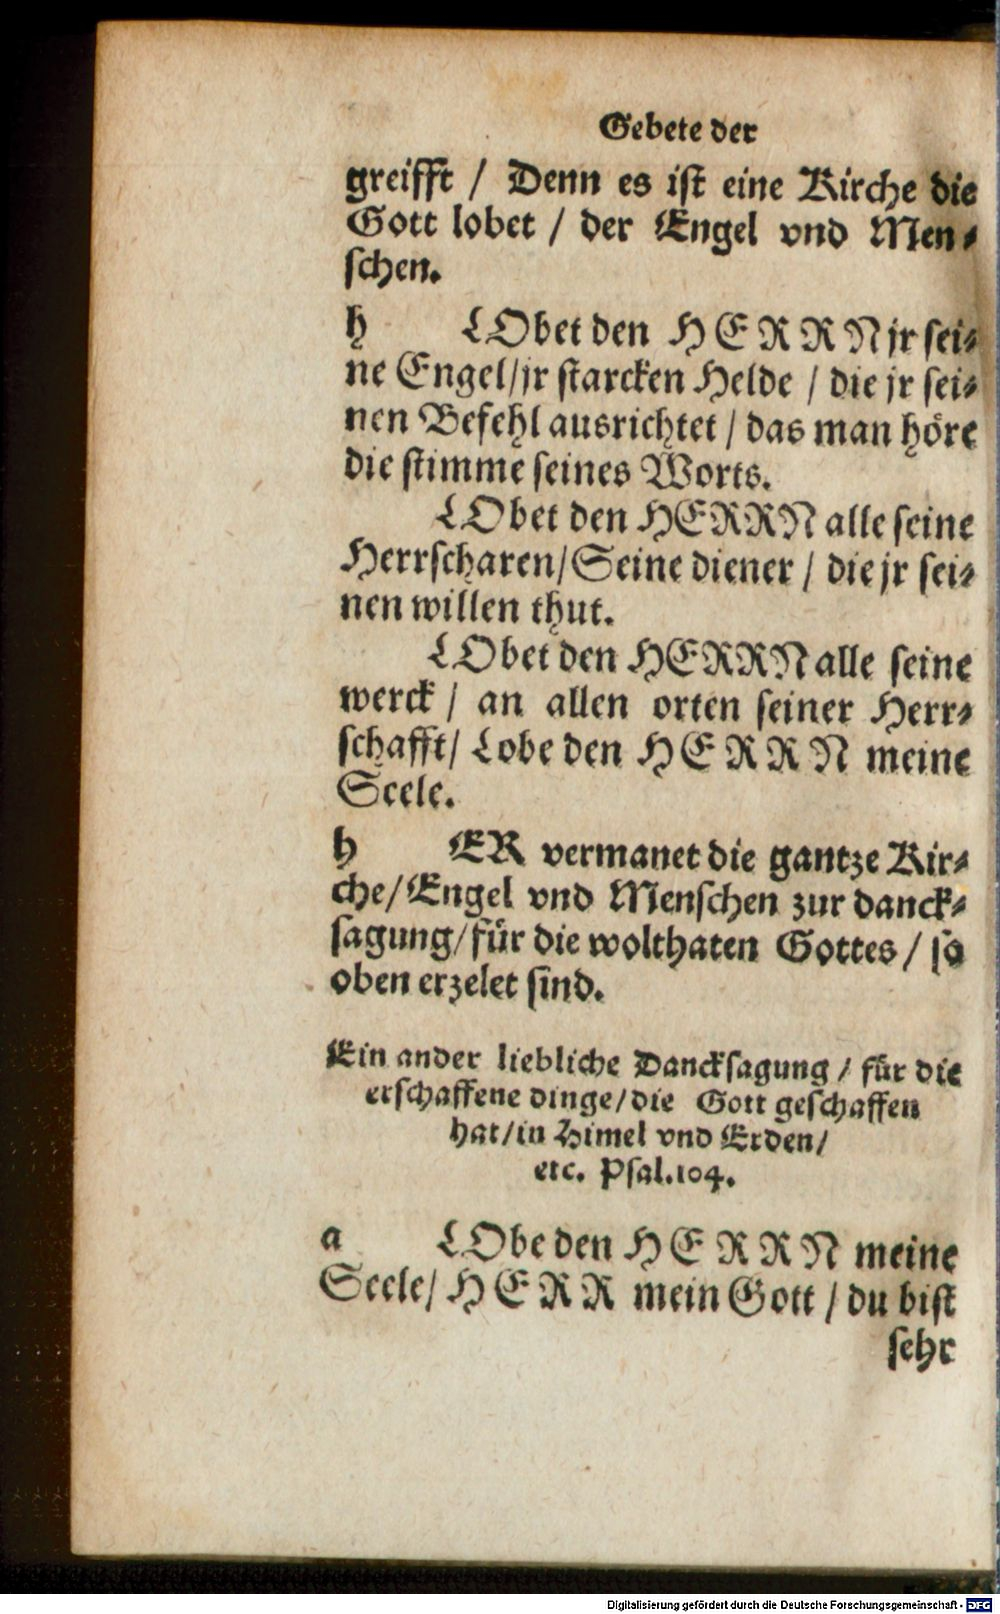 Gebete der
greifft / Denn es ist eine Kirche die
Gott lobet / der Engel vnd Men⸗
schen.
h LObet den HERRN jr sei⸗
ne Engel/jr starcken Helde / die jr sei⸗
nen Befehl ausrichtet / das man höre
die stimme seines Worts.
LObet den HERRN alle seine
Herrscharen/Seine diener / die jr sei⸗
nen willen thut.
LObet den HERRN alle seine
werck / an allen orten seiner Herr⸗
schafft/ Lobe den HERRN meine
Seele.
h ER vermanet die gantze Kir⸗
che/Engel vnd Menschen zur danck⸗
sagung/für die wolthaten Gottes / so
oben erzelet sind.
Ein ander liebliche Dancksagung / für die
erschaffene dinge/die Gott geschaffen
hat/in Himel vnd Erden/
etc. Psal.104.
a LObe den HERRN meine
Seele/ HERR mein Gott / du bist
sehr
Digitalisierung gefördert durch die Deutsche Forschungsgemeinschaft - DFG